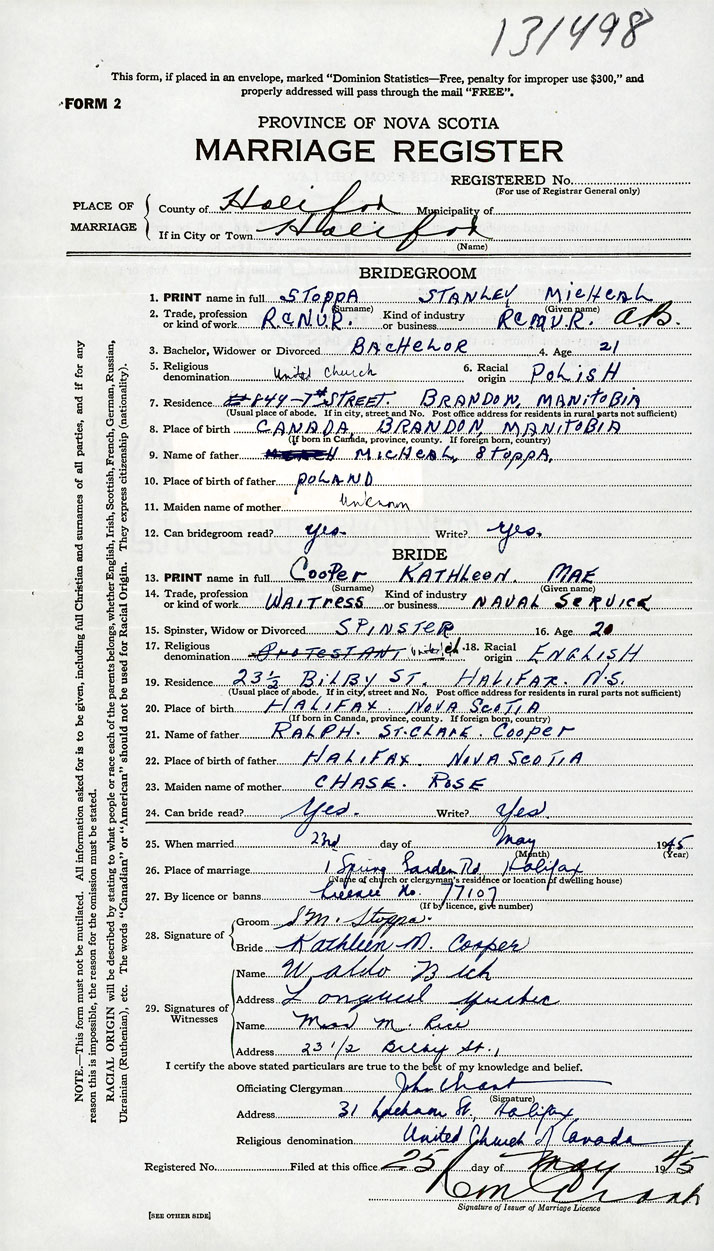 131498
This form, if placed in an envelope, marked "Dominion Statistics—Free, penalty for improper use $300," and
properly addressed will pass through the mail "FREE".
FORM 2
PROVINCE OF NOVA SCOTIA
MARRIAGE REGISTER
REGISTERED No.
(For use of Registrar General only)
PLACE OF MARRIAGE
County of Halifax Municipality of
If in City or Town Halifax
(Name)
BRIDEGROOM
1. PRINT name in full STOPPA STANLEY MICHEAL
(Surname) (Given name)
2. Trade, profession or kind of work R.C.N.V.R. Kind of industry or business RCNVR. A.B.
3. Bachelor, Widower or Divorced BACHELOR 4. Age 21
5. Religious denomination United Church 6. Racial origin POLISH
7. Residence #849-7th STREET. BRANDON, MANITOBIA
(Usual place of abode. If in city, street and No. Post office address for residents in rural parts not sufficient)
8. Place of birth CANADA, BRANDON, MANITOBIA
(If born in Canada, province, county. If foreign born, country)
9. Name of father MICHEAL, STOPPA,
10. Place of birth of father POLAND
11. Maiden name of mother Unknown
12. Can bridegroom read? yes. Write? yes.
BRIDE
13. PRINT name in full Cooper KATHLEEN. MAE
(Surname) (Given name)
14. Trade, profession or kind of work WAITRESS Kind of industry or business NAVAL SERVICE
15. Spinster, Widow or Divorced SPINSTER 16. Age 20
17. Religious denomination PROTESTANT United ch. 18. Racial origin ENGLISH
19. Residence 23½ BILBY ST. HALIFAX. N.S.
(Usual place of abode. If in city, street and No. Post office address for residents in rural parts not sufficient)
20. Place of birth HALIFAX. NOVA SCOTIA
(If born in Canada, province, county. If foreign born, country)
21. Name of father RALPH. ST.CLARE. COOPER
22. Place of birth of father HALIFAX. NOVA SCOTIA
23. Maiden name of mother CHASE. ROSE
24. Can bride read? Yes. Write? Yes.
25. When married 23rd day of May 1945
(Month) (Year)
26. Place of marriage 1 Spring Garden Rd Halifax
(Name of church or clergyman's residence or location of dwelling house)
27. By licence or banns Licence No. 77107
(If by licence, give number)
28. Signature of
Groom S.M. Stoppa.
Bride Kathleen M. Cooper
29. Signatures of Witnesses
Name Waldo
Address Longueil Quebec
Name M. Rice
Address 23 1/2 Bilby St.,
I certify the above stated particulars are true to the best of my knowledge and belief.
Officiating Clergyman John Grant
(Signature)
Address 31 St. Halifax
Religious denomination United Church of Canada
Registered No. Filed at this office 25 day of May 1945
Signature of Issuer of Marriage Licence
[SEE OTHER SIDE]
NOTE.—This form must not be mutilated. All information asked for is to be given, including full Christian and surnames of all parties, and if for any
reason this is impossible, the reason for the omission must be stated.
RACIAL ORIGIN will be described by stating to what people or race each of the parents belongs, whether English, Irish, Scottish, French, German, Russian,
Ukrainian (Ruthenian), etc. The words "Canadian" or "American" should not be used for Racial Origin. They express citizenship (nationality).